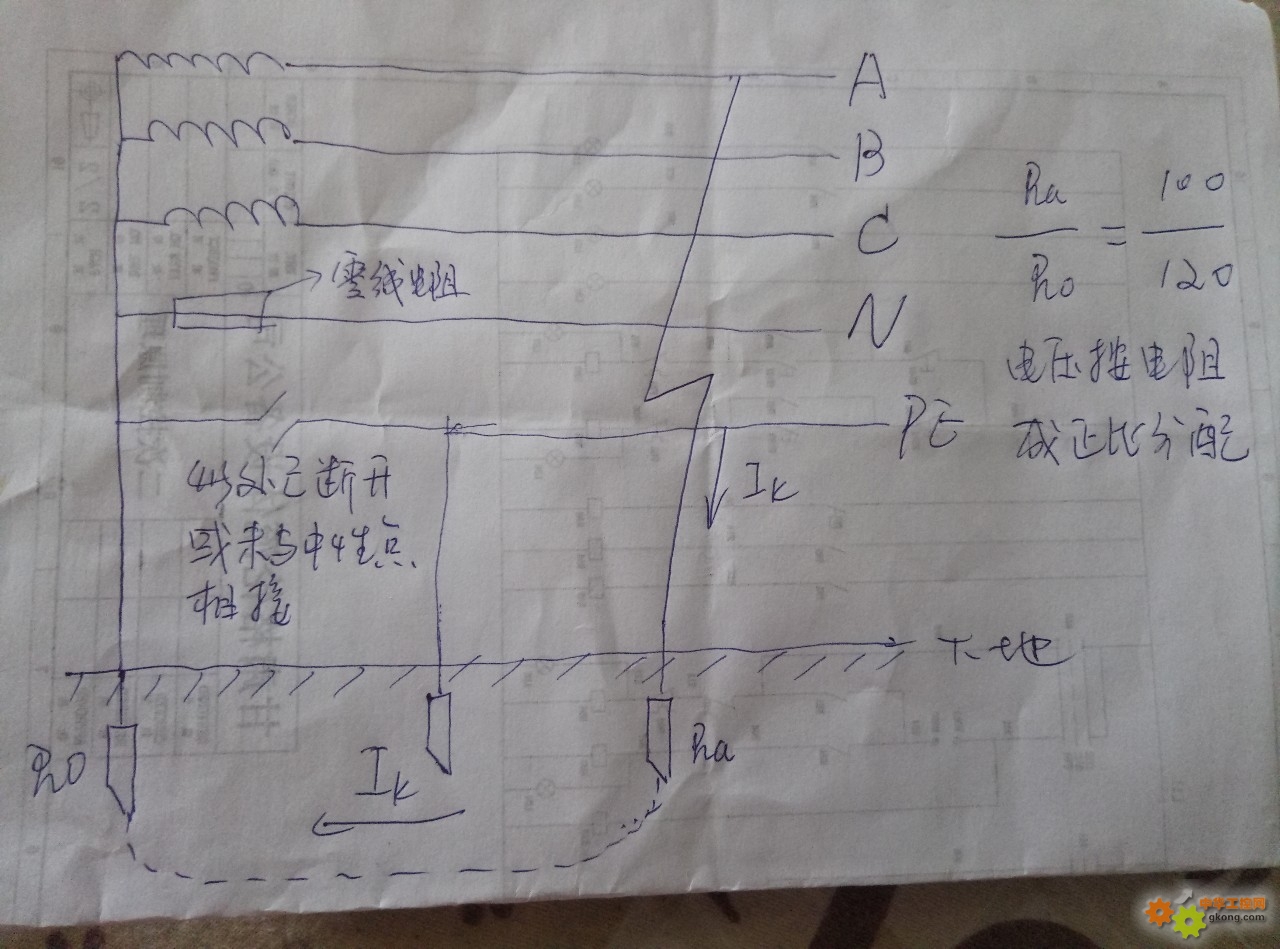 A
B
C
零线电阻
N
PE
此处已断开
或未与中性点
相接
Ik
大地
R0
Ik
Ra
Ra
100
=
R0
120
电压按电阻
成正比分配
中华工控网
gkong.com